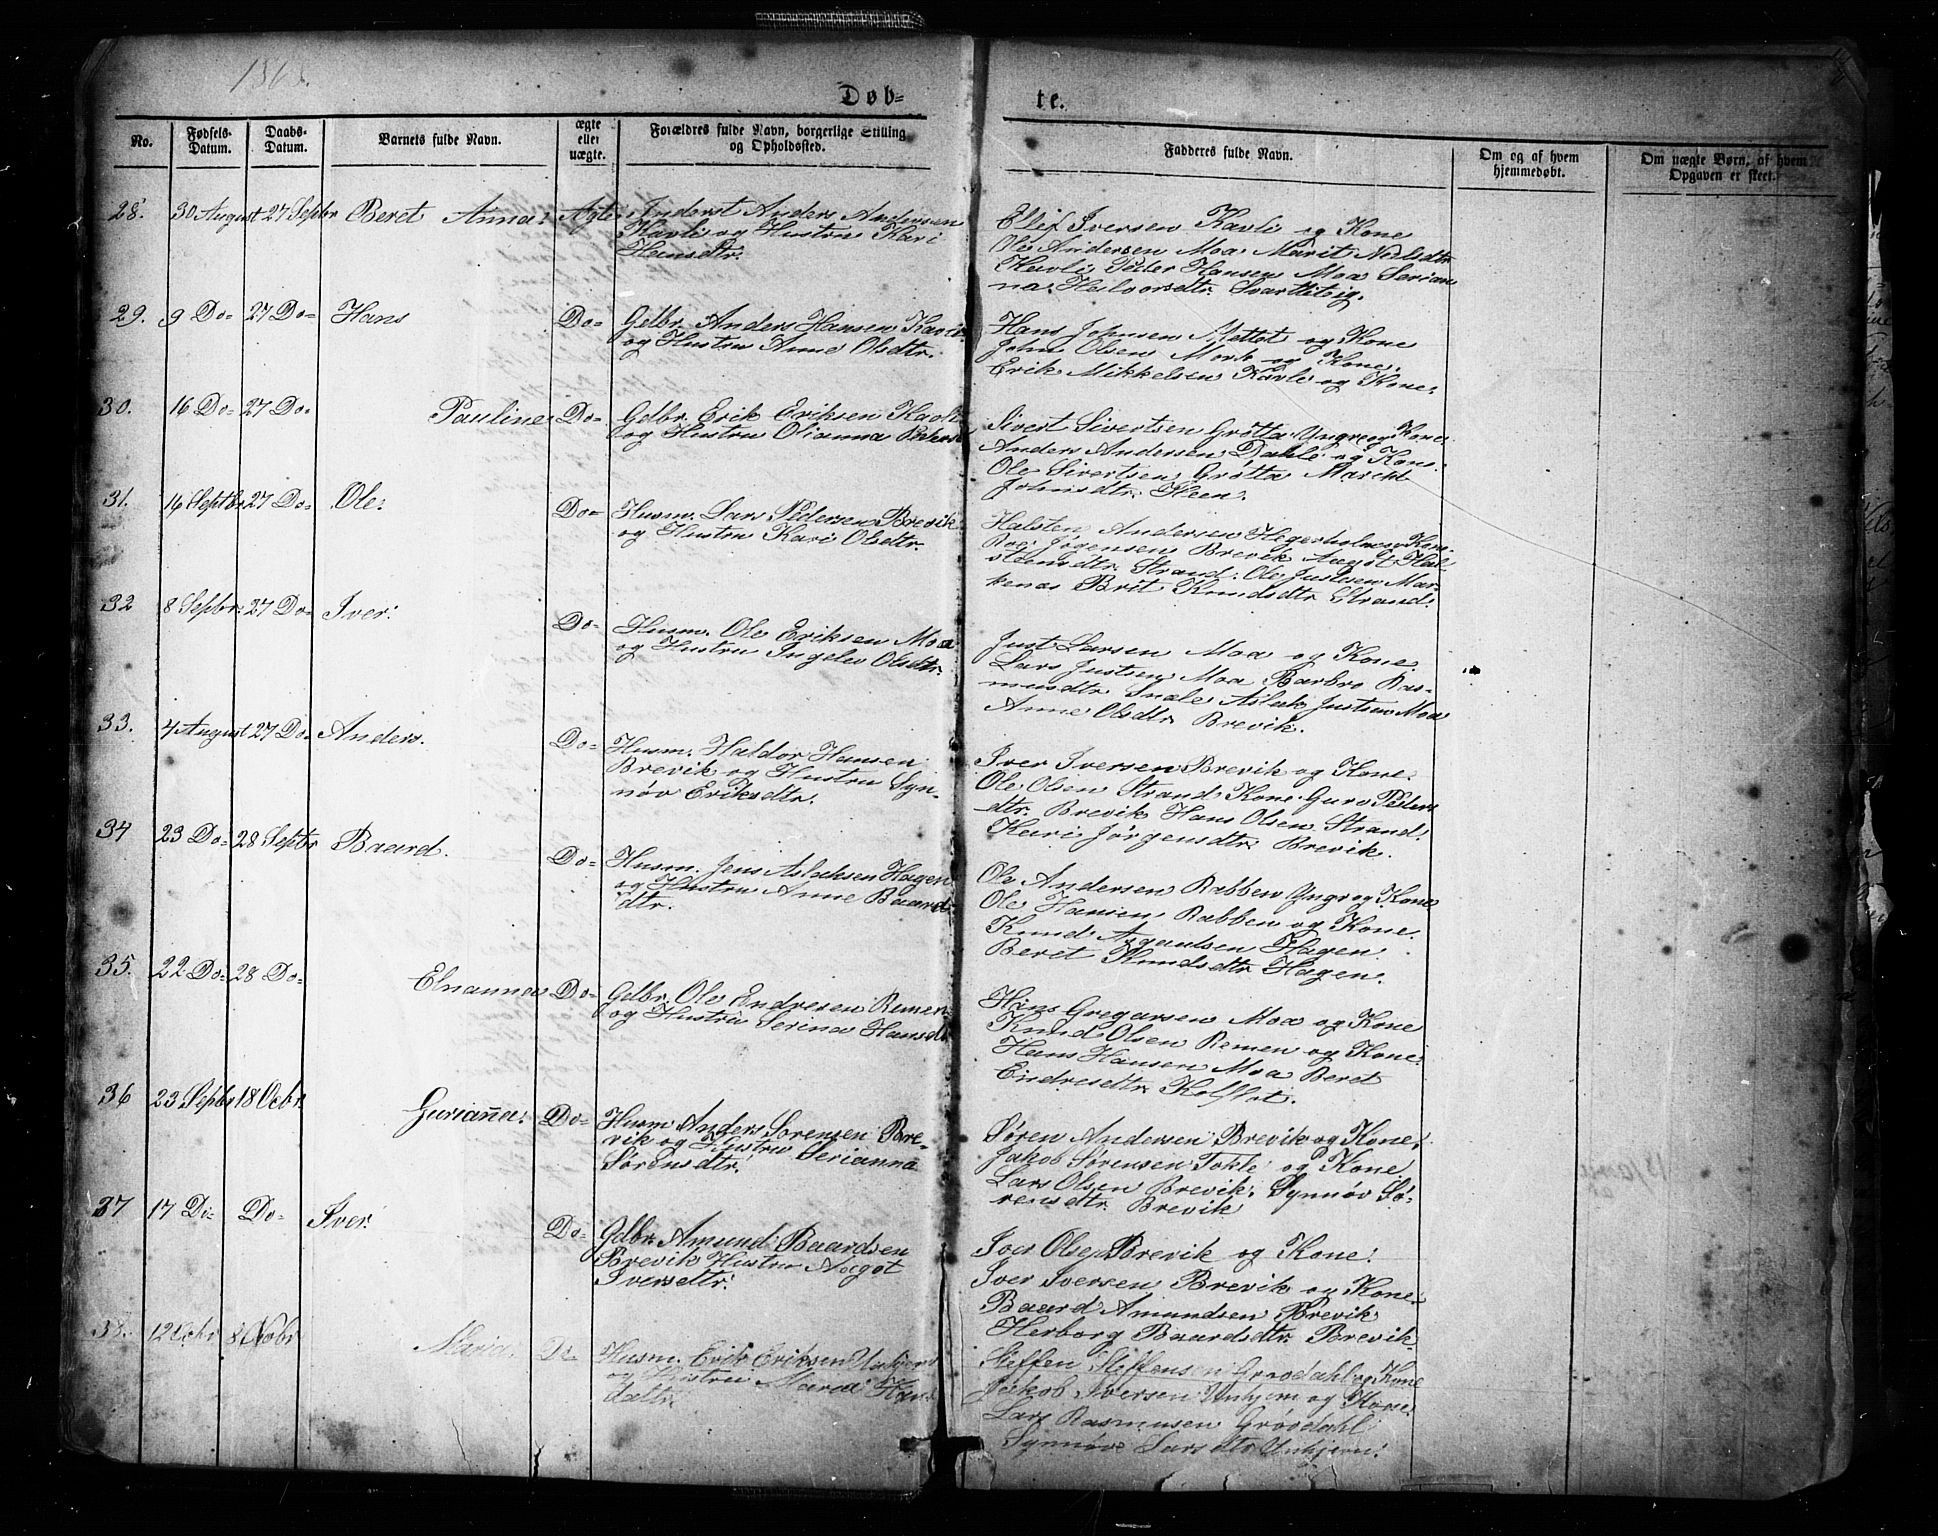 Døb=
te.
No.
Fødsels-
Datum.
Daabs-
Datum.
Barnets fulde Navn.
ægte
eller
uægte.
Forældres fulde Navn, borgerlige Stilling
og Opholdssted.
Fadderes fulde Navn.
Om og af hvem
hjemmedøbt.
Om uægte Børn, af hvem
Opgaven er skeet.
28. 30 August 27 Septbr Beret Anna: Ægte Anders Andersen
Kavli og Hustru Kari
Hansdtr.
Ellef Iversen Kavli og Kone
Ole Andersen Moa Marit Nilsdtr
Kavli, Peder Hansen Moa Serian-
na Halvorsdtr. Svartteig.
29. 9 Do= 27 Do= Hans Do= Gdbr. Anders Hansen Kavli
og Hustru Anne Olsdtr.
Hans Johnsen Mettet og Kone
John Olsen Mork og Kone.
Erik Mikkelsen Kavli og Kone.
30. 16 Do= 27 Do= Pauline Do= Gdbr. Erik Eriksen Kavli
og Hustru Olianna Peders
Sivert Sivertsen Grötta Yngre og Kone.
Anders Andersen Dahle og Kone.
Ole Sivertsen Grötta Marit
Johnsdtr. Heen.
31. 16 Septbr 27 Do= Ole: Do= Husm. Lars Pedersen Brevik
og Hustru Kari Olsdtr.
Halsten Andersen Hegerholm og Kone
Roe Jögensen Brevik Aagot Hal-
steensdtr Strand. Ole Justesen Mar-
kenæs Brit Knudsdtr Strand.
32 8 Sepbr: 27 Do= Iver: Do= Husm. Ole Eriksen Moa
og Hustru Ingelev Olsdtr.
Just Larsen Moa og Kone
Lars Justsen Moa Barbro Ras-
musdtr. Snale Aslak Justsen Moa
Anne Olsdtr Brevik.
33. 4 August 27 Do= Anders. Do= Husm. Haldor Hansen
Brevik og Hustru Syn-
növ Eriksdtr.
Iver Iversen Brevik og Kone.
Ole Olsen Strand Kone. Guro Peders
dtr. Brevik Hans Olsen Strand.
Kari Jörgensdtr. Brevik.
34 23 Do= 28 Septbr Baard. Do= Husm. Jens Aslaksen Hagen
og Hustru Anne Baard-
dtr.
Ole Andersen Rabben Yngr og Kone
Ole Hansen Rabben og Kone.
Knud Hagen.
Beret Knudsdtr Hagen.
35. 22 Do= 28 Do= Elnanna Do= Gdbr. Ole Endresen Remen
og Hustru Serina Hansdt
Hans Gregarsen Moa og Kone
Knud Olsen Remen og Kone.
Hans Hansen Moa Beret
Endresdtr. Kolflot.
36 23 Sepbr 18 Ocbr. Gurianna: Do= Husm Anders Sorensen Bre-
vik og Hustru Serianna
Sörensdtr.
Sören Andersen Brevik og Kone.
Jakob Sörensen Tokle og Kone
Lars Olsen Brevik. Synnöv Sö-
rensdtr. Brevik
37 17 Do= Do= Iver. Do= Gdbr. Amund Baardsen
Brevik Hustru Aagot
Iversdtr.
Iver Olsen Brevik og Kone.
Iver Iversen Brevik og Kone.
Baard Amundsen Brevik
Herborg Baardsdtr. Brevik.
38. 12 Ocbr 8 Novbr Maria. Do. Husm. Erik Eriksen Unhjem
og Hustru Maria
Steffen Steffensen Gröedahl og Kone
Jakob Iversen Unhjem og Kone.
Lars Rasmusen Gröedahl
Synnöve Larsdtr Unhjem.